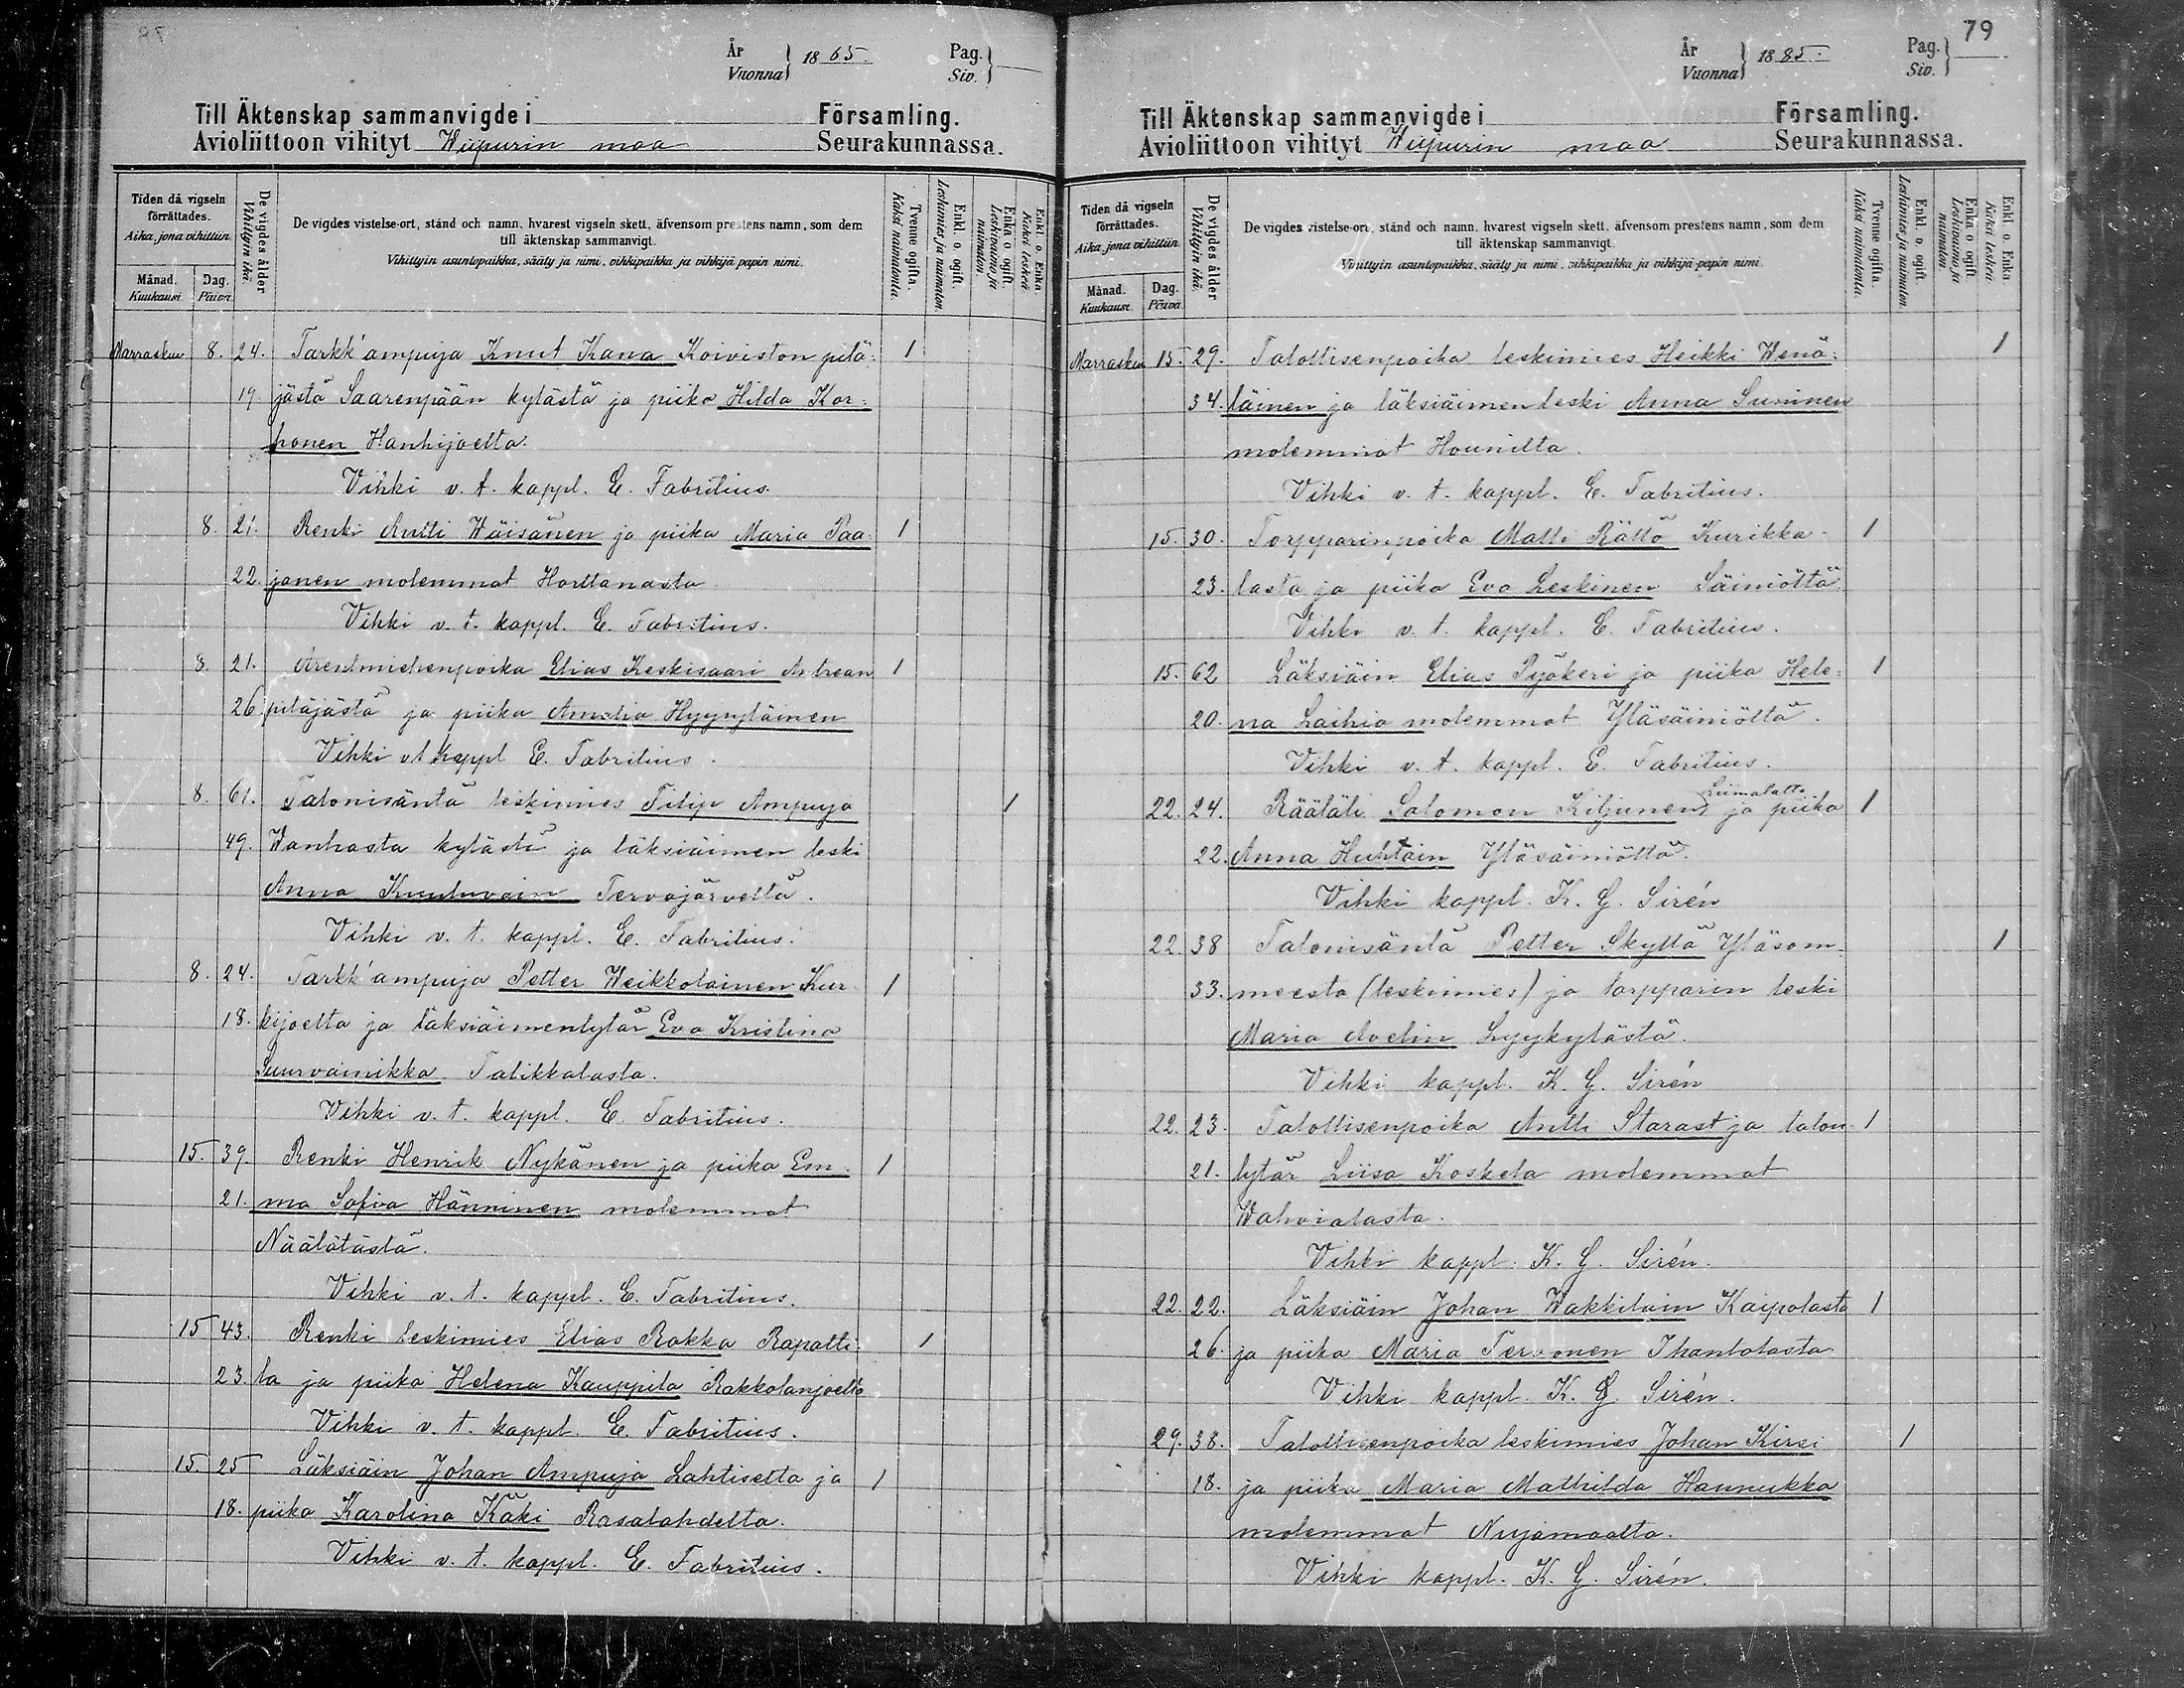 År
Vuonna } 18 65. Pag.
Siv. }
Till Äktenskap sammanvigde i Församling.
Avioliittoon vihityt Wiipurin maa Seurakunnassa.
Tiden då vigseln förrättades.
Aika, jona vihittiin.
Månad.
Kuukausi.
Dag.
Päivä.
De vigdes ålder
Vihittyin ikä.
De vigdes vistelse-ort, stånd och namn, hvarest vigseln skett, äfvensom prestens namn, som dem
till äktenskap sammanvigt.
Vihittyin asuntopaikka, sääty ja nimi, vihkipaikka ja vihkijä papin nimi.
Tvenne ogifta.
Kaksi naimatonta.
Enkl. o. ogift.
Leskimies ja naimaton.
Enka o ogift.
Leskivaimo ja naimaton.
Enkl. o. Enka.
Kaksi leskeä.
Marraskuu 8. 24. Tarkk'ampuja Knut Kana Koiviston pitä- 1
19. jästä Saarenpään kylästä ja piika Hilda Kor-
honen Hanhijoelta.
Vihki v. t. kappl. E. Fabritius.
8. 21. Renki Antti Wäisänen ja piika Maria Paa- 1
22. janen molemmat Horttanasta
Vihki v. t. kappl. E. Fabritius.
8. 21. Arentmiehenpoika Elias Keskisaari Antrean 1
26 pitäjästä ja piika Amalia Hyyryläinen
Vihki v t kappl E. Fabritius.
8. 61. Talonisäntä leskimies Filip Ampuja 1
49. Wanhasta kylästä ja läksiäimen leski
Anna Kuuluvain Tervajärveltä.
Vihki v. t. kappl. E. Fabritius.
8. 24. Tarkk'ampuja Petter Weikkolainen Kur- 1
18. kijoelta ja läksiäimentytär Eva Kristina
Suurvainikka Talikkalasta.
Vihki v. t. kappl. E. Fabritius.
15. 39. Renki Henrik Nykänen ja piika Em- 1
21. ma Sofia Hänninen molemmat
Näätälästä.
Vihki v. t. kappl. E. Fabritius.
15 43. Renki leskimies Elias Rakka Rapatti- 1
23. la ja piika Helena Kauppila Rakkolanjoelta
Vihki v. t. kappl. E. Fabritius.
15 25 Läksiäin Johan Ampuja Lahtiselta ja 1
18. piika Karolina Käki Rasalahdelta.
Vihki v. t. kappl. E. Fabritius.
79
År
Vuonna } 18 85. Pag.
Siv. }
Till Äktenskap sammanvigde i Församling.
Avioliittoon vihityt Wiipurin maa Seurakunnassa.
Tiden då vigseln förrättades.
Aika, jona vihittiin.
Månad.
Kuukausi.
Dag.
Päivä.
De vigdes ålder
Vihittyin ikä.
De vigdes vistelse-ort, stånd och namn, hvarest vigseln skett, äfvensom prestens namn, som dem
till äktenskap sammanvigt.
Vihittyin asuntopaikka, sääty ja nimi, vihkipaikka ja vihkijä papin nimi.
Tvenne ogifta.
Kaksi naimatonta.
Enkl. o. ogift.
Leskimies ja naimaton.
Enka o ogift.
Leskivaimo ja naimaton
Enkl. o. Enka.
Kaksi leskeä.
Marraskuu 15. 29. Talollisenpoika leskimies Heikki Wenä- 1
34. läinen ja läksiäimen leski Anna Suninen
molemmat Hounilta.
Vihki v. t. kappl. E. Fabritius.
15. 30. Torpparinpoika Matti Rättö Kurikka- 1
23. lasta ja piika Eva Leskinen Säiniöltä.
Vihki v. t. kappl. E. Fabritius.
15. 62 Läksiäin Elias Pyökeri ja piika Hele- 1
20. na Laihia molemmat Yläsäiniöltä.
Vihki v. t. kappl. E. Fabritius.
Liimalatt.
22. 24. Räätäli Salomon Kiljunen ja piika 1
22. Anna Huhtain Yläsäiniöltä.
Vihki kappl. K. G. Sirén
22. 38 Talonisäntä Petter Skyttä Yläsom- 1
33. meesta (leskimies) ja torpparin leski
Maria Avelin Lyykylästä.
Vihki kappl. K. G. Sirén
22. 23. Talollisenpoika Antti Starast ja talon- 1
21. tytär Liisa Koskela molemmat
Wahvialasta.
Vihki kappl. K. G. Sirén.
22. 22. Läksiäin Johan Wakkilain Kaipolasta 1
26. ja piika Maria Tervonen Ihantolasta
Vihki kappl. K. G. Sirén.
29. 38. Talollisenpoika leskimies Johan Kirsi 1
18. ja piika Maria Mathilda Hannukka
molemmat Nuijamaalta.
Vihki kappl. K. G. Sirén.